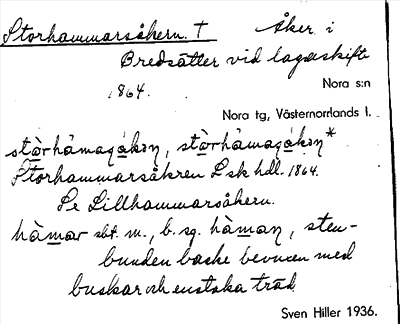 Storhammarsåkern. † Åker i
Bredsätter vid lagaskift
1864. Nora s:n
Nora tg, Västernorrlands l.
stòrhåmaɋåkən, stòrhåmaɋåkən*
Storhammarsåkren Lsk hdl. 1864.
Se Lillhammarsåkern.
hàmar sbt. m., b. sg. hàmaɳ, sten-
bunden backe bevuxen med
buskar och enstaka träd
Sven Hiller 1936.